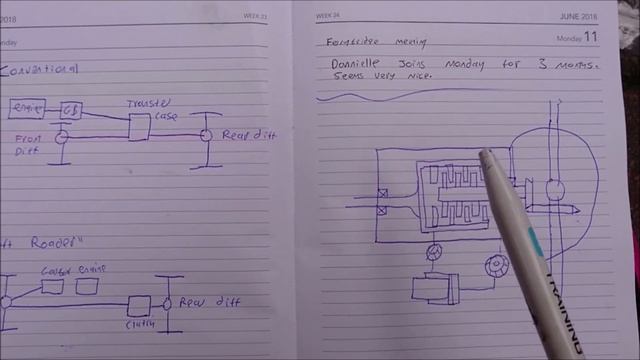 2018
WEEK 23
Monday
Conventional
engine
GB
Transfer
case
Front
Diff
Rear diff
ft Roader"
engine
Rear diff
Clutch
WEEK 24
JUNE 2018
Monday 11
meeting
Dannielle Joins Monday for 3 months.
Seems very nice.
TRAINING